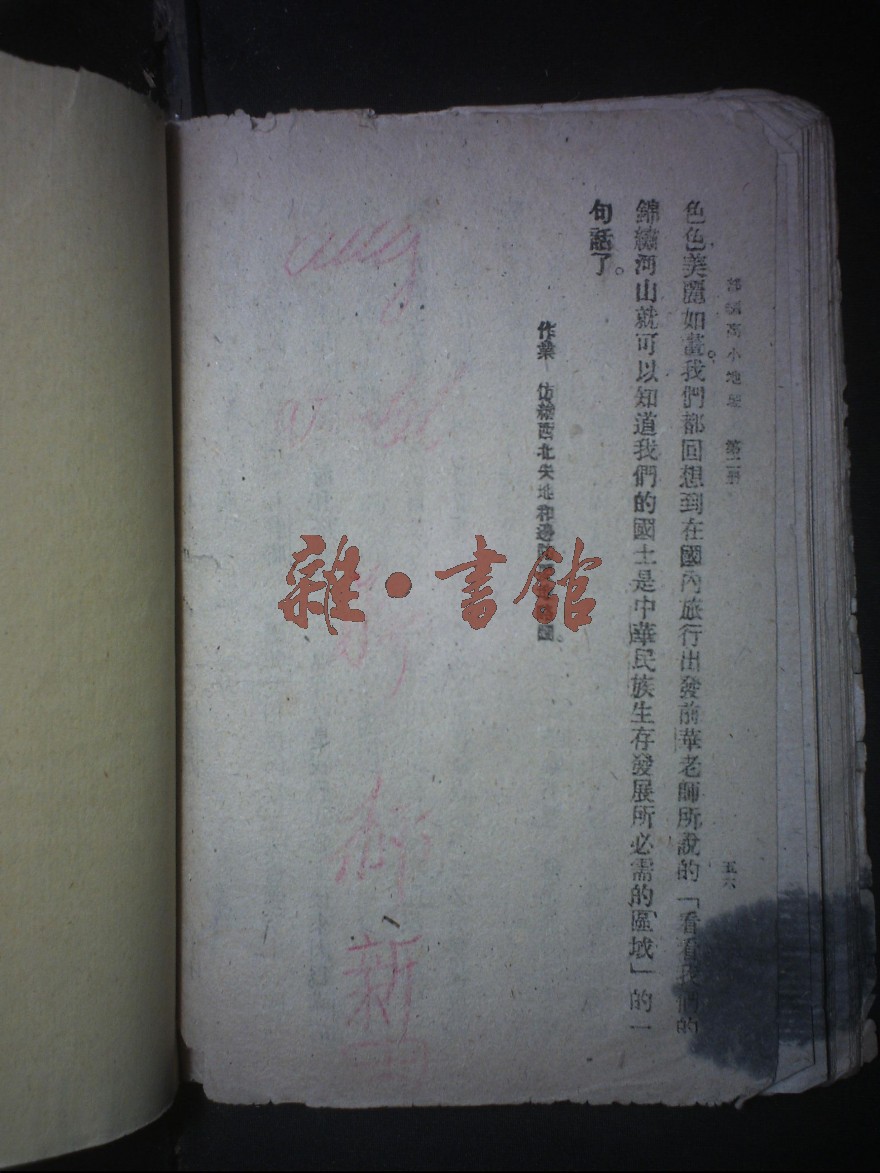 高小地理 第二册
五六
色色美麗如畫。我們都回想到在國內旅行出發前華老師所說的「看看我們的
錦繡河山就可以知道我們的國土是中華民族生存發展所必需的區域」的一
句話了。
作業 仿繪西北失地和邊防圖。
雜·書館
新